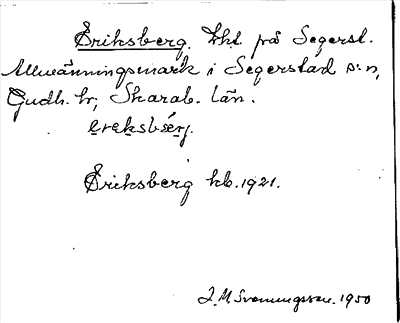 Eriksberg. Lht. på Segerst.
Allmänningsmark i Segerstad s:n,
Gudh. hr; Skarab. län.
ereksbærj.
Eriksberg kb. 1921.
J. M. Svenningsson. 1950